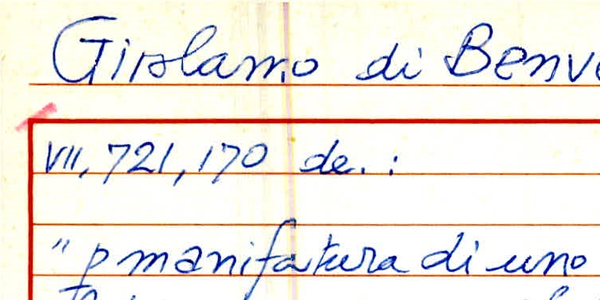 Girolamo di Benve
VII, 721, 170 de. :
" p manifatura di uno